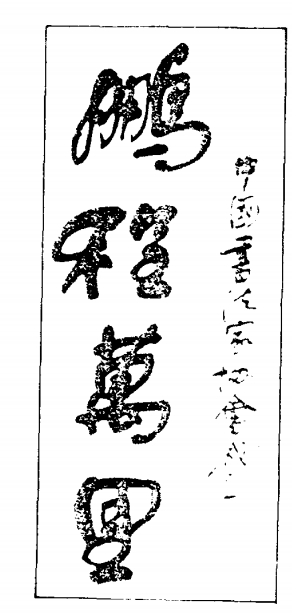 鵬程萬里
中國書法家